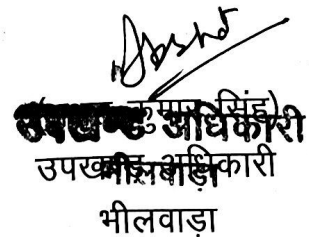 कुमार सिंह)
उपखण्ड अधिकारी
उपखण्ड अधिकारी
भीलवाड़ा
भीलवाड़ा